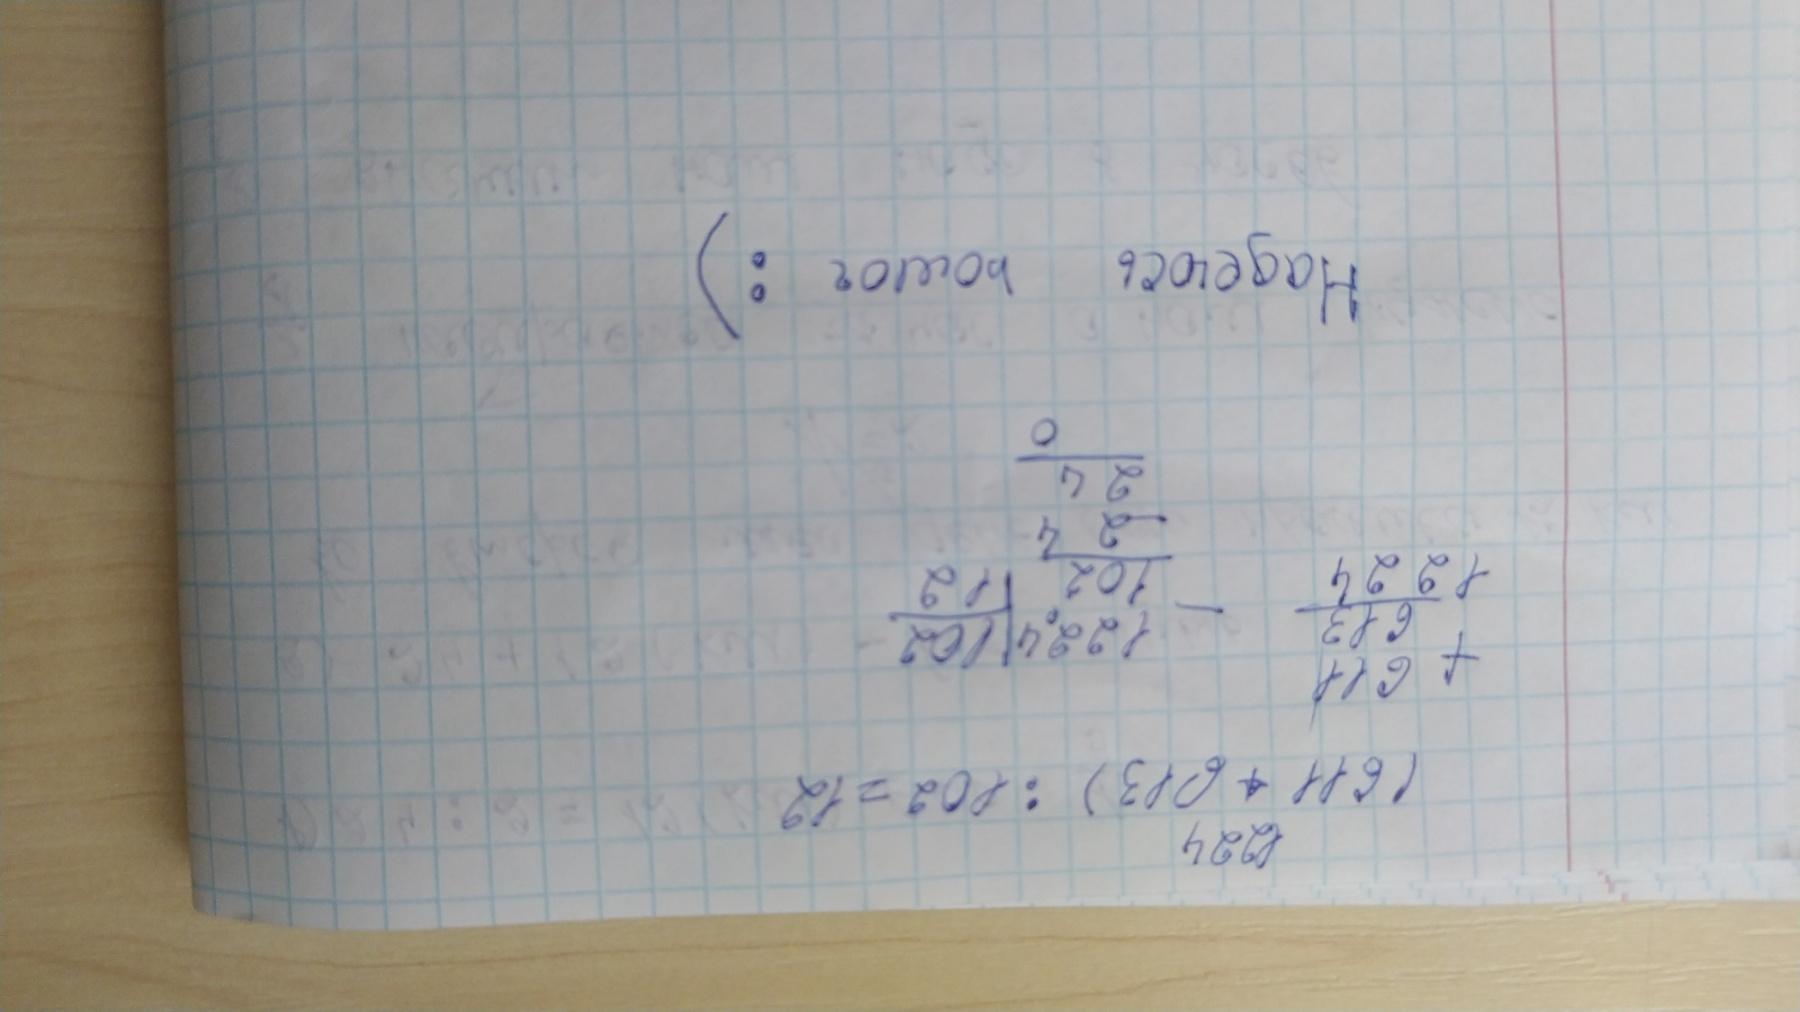 1224
(611 + 613) : 102 = 12
+ 611
613
1224
- 1224 | 102
102 | 12
2 4
2 4
0
Надеюсь помог :)